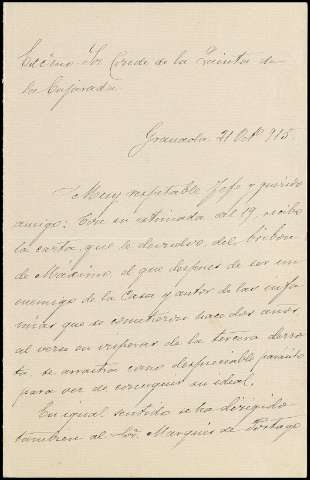 Excmo. Sr. Conde de la Quinta de
la Enjarada.
Granada 21 Octe. 915.
Muy respetable Jefe y querido
amigo: Con su estimada del 19, recibo
la carta, que le devuelvo, del bribon
de Máximo, el que despues de ser un
enemigo de la Casa y autor de las infa-
mias que se cometieron hace dos años
al verse en visperas de la tercera derro-
ta se arrastra como despreciable
para ver de conseguir su ideal.
En igual sentido se ha dirigido
tambien al Sor. Marqués de Portago